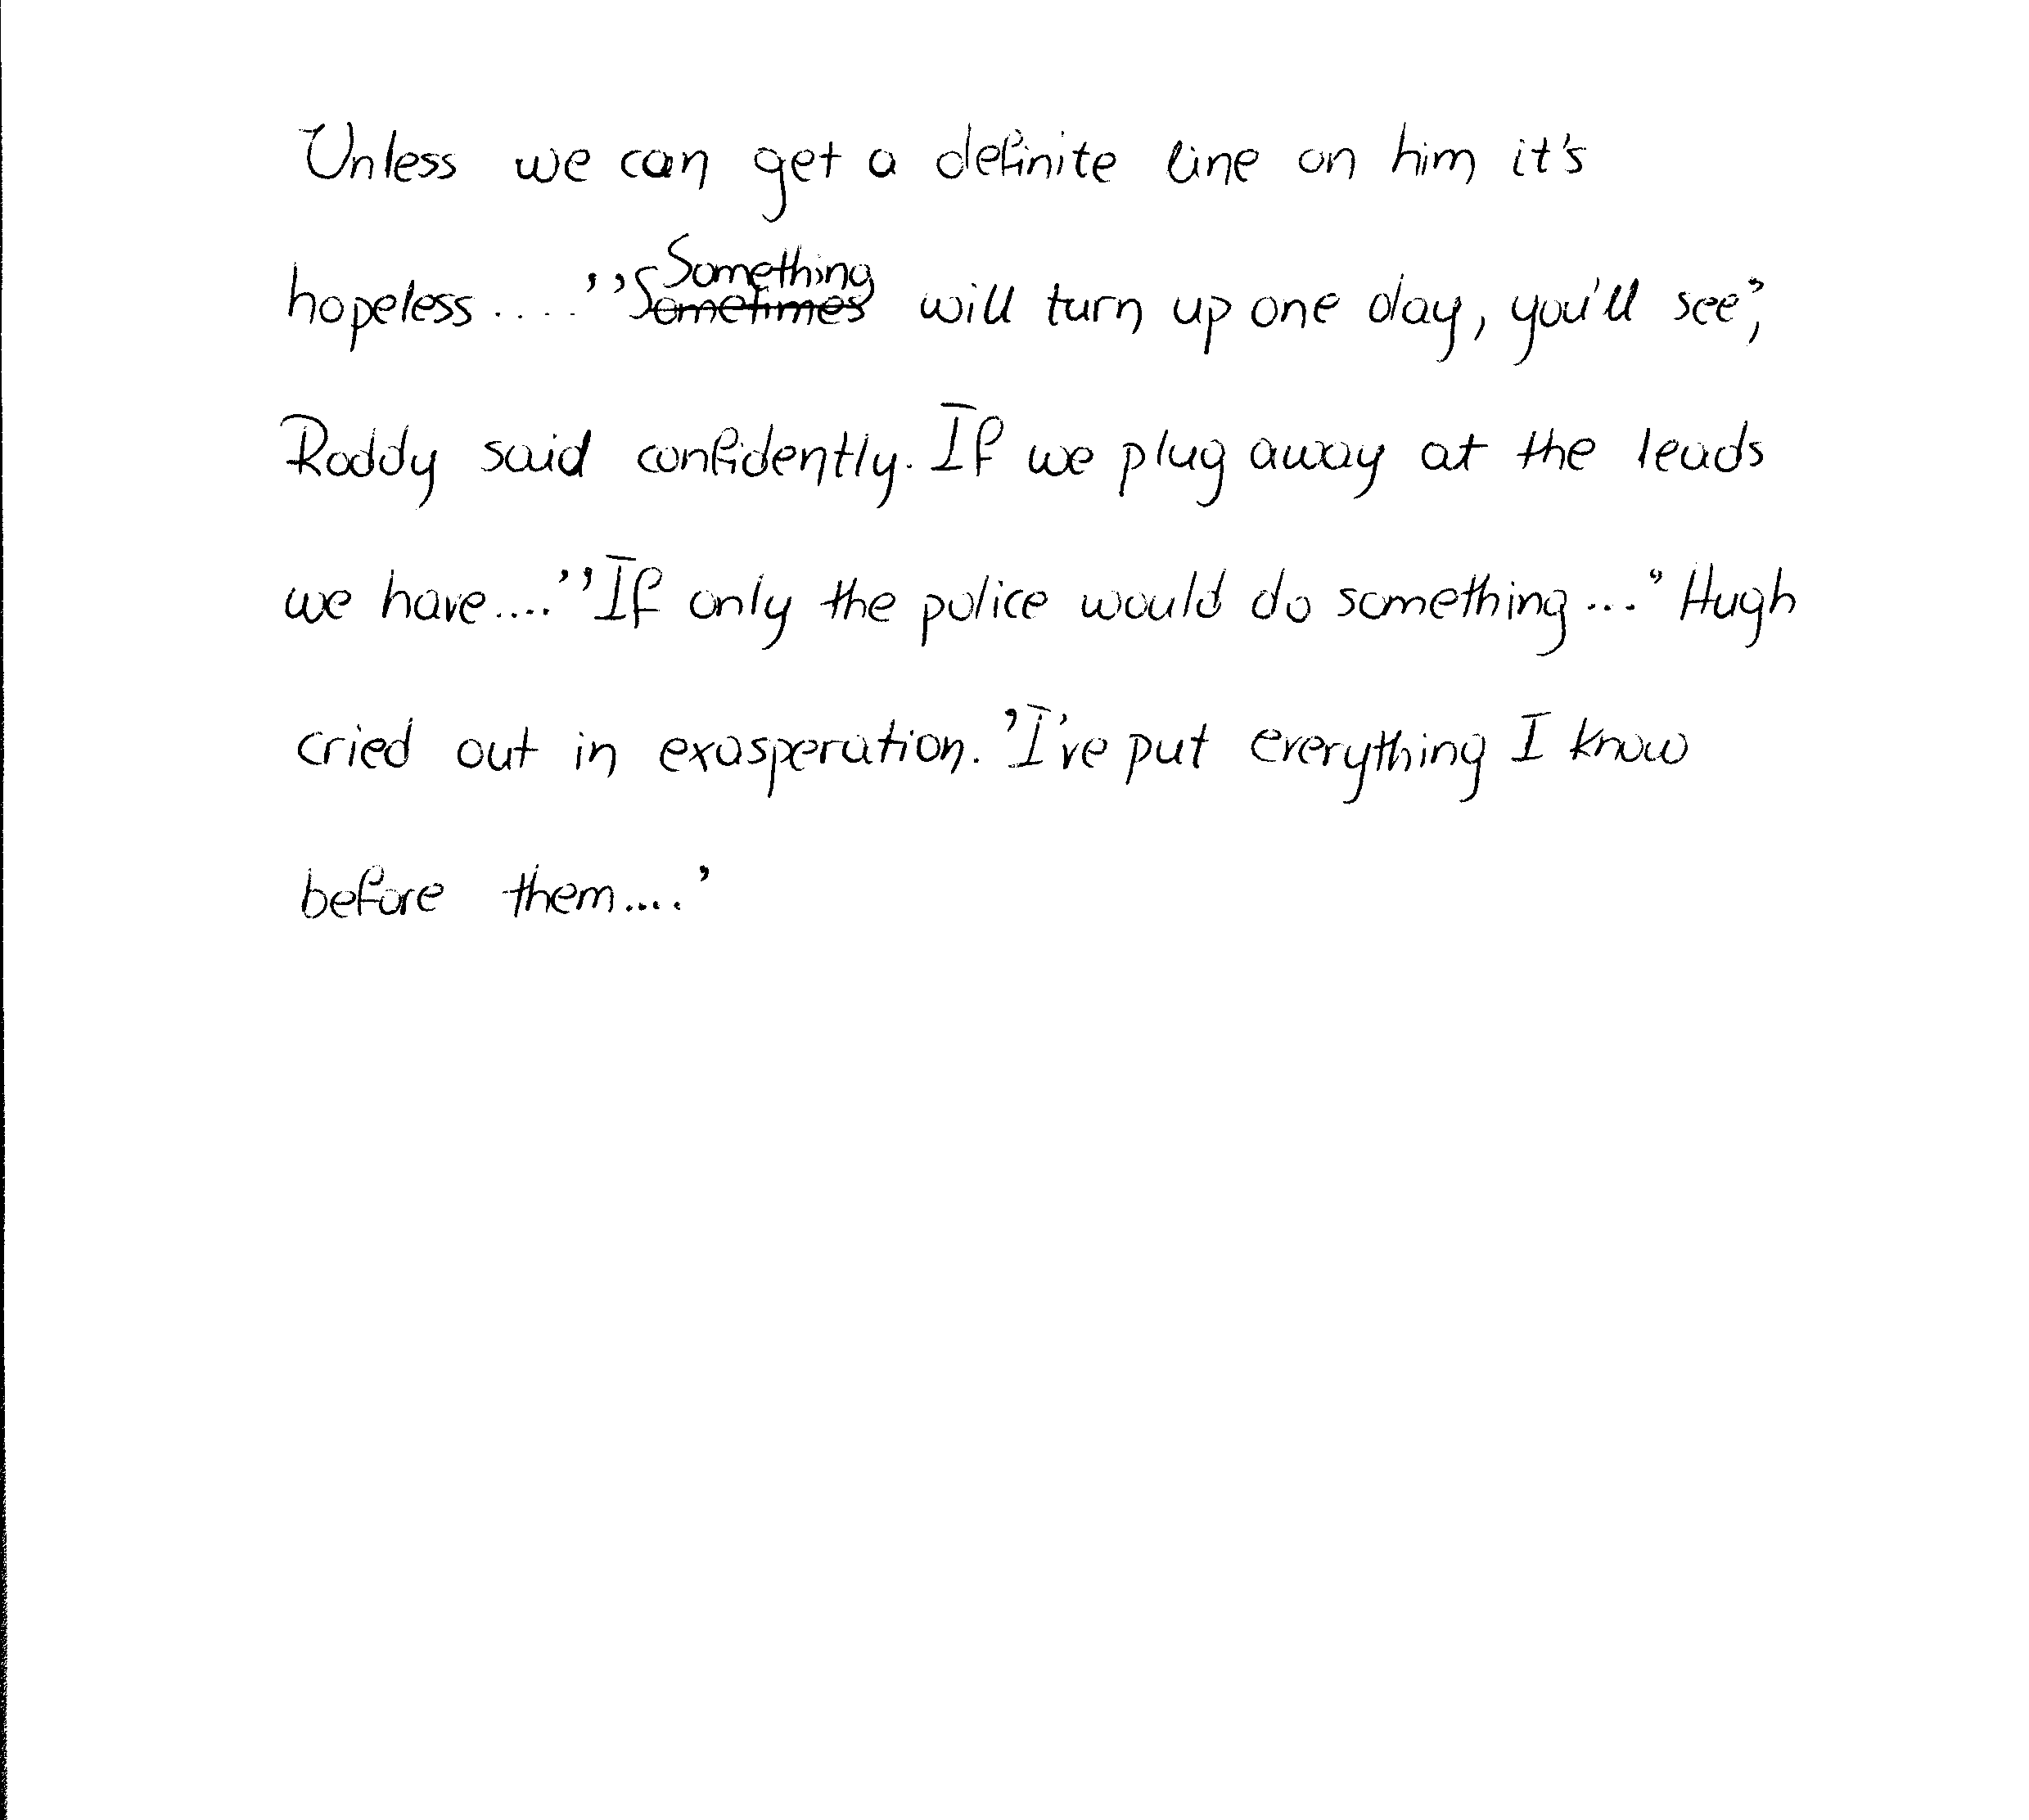 Unless we can get a definite line on him it's
hopeless....' 'Something will turn up one day, you'll see',
Roddy said confidently. If we plug away at the leads
we have....' 'If only the police would do something...' Hugh
cried out in exasperation. 'I've put everything I know
before them....'